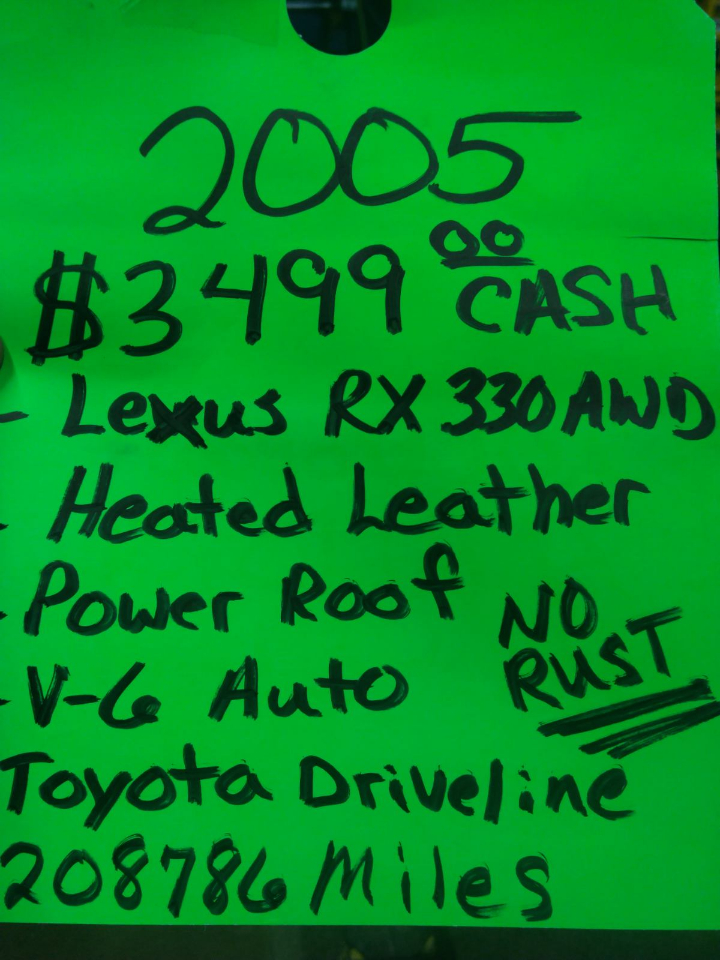 2005
$3499 00 CASH
- Lexus RX 330 AWD
- Heated Leather
- Power Roof
NO RUST
- V-6 Auto
Toyota Driveline
208786 Miles